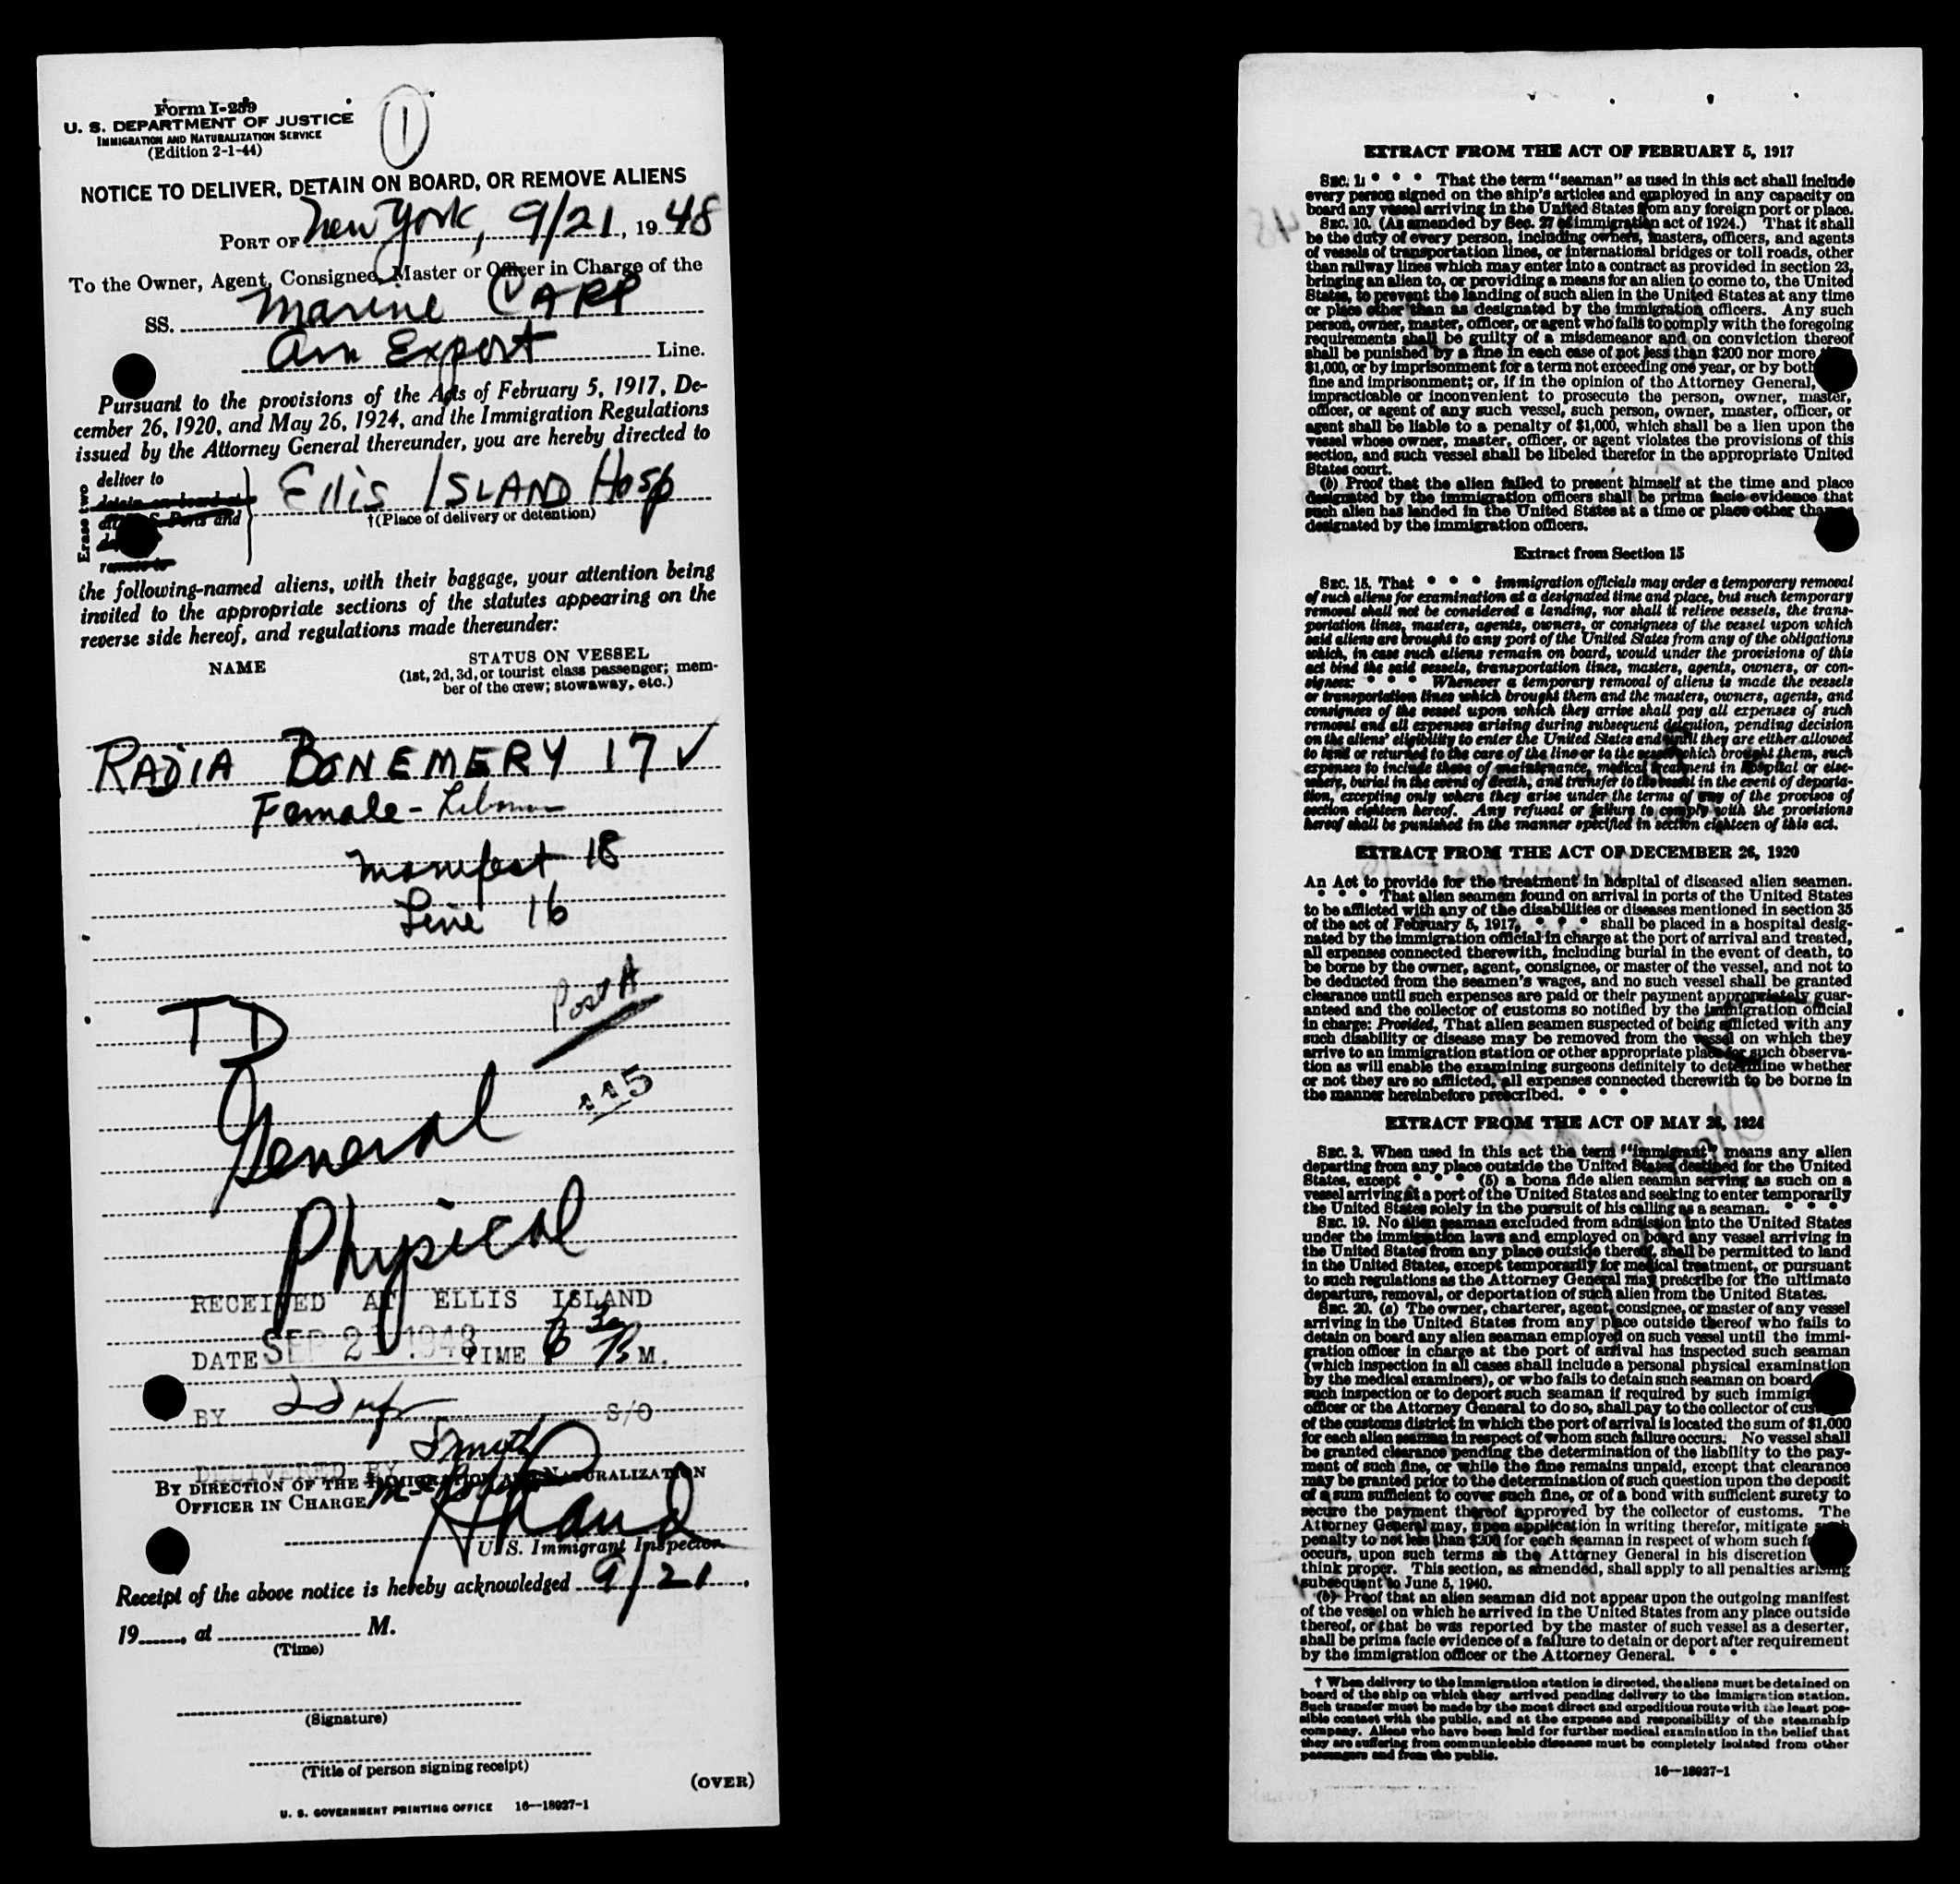 Form I-259
U. S. DEPARTMENT OF JUSTICE
IMMIGRATION AND NATURALIZATION SERVICE
(Edition 2-1-44)
1
NOTICE TO DELIVER, DETAIN ON BOARD, OR REMOVE ALIENS
PORT OF New York, 9/21, 1948
To the Owner, Agent, Consignee, Master or Officer in Charge of the
SS. Marine CARP
Am Export Line.
Pursuant to the provisions of the Acts of February 5, 1917, De-
cember 26, 1920, and May 26, 1924, and the Immigration Regulations
issued by the Attorney General thereunder, you are hereby directed to
Erase two
deliver to
detain on board at
Ports and
remove to
Ellis ISLAND Hosp
†(Place of delivery or detention)
the following-named aliens, with their baggage, your attention being
invited to the appropriate sections of the statutes appearing on the
reverse side hereof, and regulations made thereunder:
NAME
STATUS ON VESSEL
(1st, 2d, 3d, or tourist class passenger; mem-
ber of the crew; stowaway, etc.)
RADIA BONEMERY 17 ✓
Female -
Manifest 18
Line 16
Post A
TD
115
General
Physical
RECEIVED AT ELLIS ISLAND
DATE SEP 21 1948 TIME 6 30 P M.
BY S/O
DELIVERED BY Smith
BY DIRECTION OF THE IMMIGRATION AND NATURALIZATION
OFFICER IN CHARGE
U. S. Immigrant Inspector.
Receipt of the above notice is hereby acknowledged 9/21,
19......, at .................... M.
(Time)
(Signature)
(Title of person signing receipt)
(OVER)
U. S. GOVERNMENT PRINTING OFFICE 16—18927-1
EXTRACT FROM THE ACT OF FEBRUARY 5, 1917
SEC. 1: * * * That the term "seaman" as used in this act shall include
every person signed on the ship's articles and employed in any capacity on
board any vessel arriving in the United States from any foreign port or place.
SEC. 10. (As amended by Sec. 27 of immigration act of 1924.) That it shall
be the duty of every person, including owners, masters, officers, and agents
of vessels of transportation lines, or international bridges or toll roads, other
than railway lines which may enter into a contract as provided in section 23,
bringing an alien to, or providing a means for an alien to come to, the United
States, to prevent the landing of such alien in the United States at any time
or place other than as designated by the immigration officers. Any such
person, owner, master, officer, or agent who fails to comply with the foregoing
requirements shall be guilty of a misdemeanor and on conviction thereof
shall be punished by a fine in each case of not less than $200 nor more
$1,000, or by imprisonment for a term not exceeding one year, or by both
fine and imprisonment; or, if in the opinion of the Attorney General,
impracticable or inconvenient to prosecute the person, owner, master,
officer, or agent of any such vessel, such person, owner, master, officer, or
agent shall be liable to a penalty of $1,000, which shall be a lien upon the
vessel whose owner, master, officer, or agent violates the provisions of this
section, and such vessel shall be libeled therefor in the appropriate United
States court.
(b) Proof that the alien failed to present himself at the time and place
designated by the immigration officers shall be prima facie evidence that
such alien has landed in the United States at a time or place other than as
designated by the immigration officers.
Extract from Section 15
SEC. 15. That * * * immigration officials may order a temporary removal
of such aliens for examination at a designated time and place, but such temporary
removal shall not be considered a landing, nor shall it relieve vessels, the trans-
portation lines, masters, agents, owners, or consignees of the vessel upon which
said aliens are brought to any port of the United States from any of the obligations
which, in case such aliens remain on board, would under the provisions of this
act bind the said vessels, transportation lines, masters, agents, owners, or con-
signees: * * * Whenever a temporary removal of aliens is made the vessels
or transportation lines which brought them and the masters, owners, agents, and
consignees of the vessel upon which they arrive shall pay all expenses of such
removal and all expenses arising during subsequent detention, pending decision
on the aliens' eligibility to enter the United States and until they are either allowed
to land or returned to the care of the line or to the vessel which brought them, such
expenses to include those of maintenance, medical treatment in hospital or else-
where, burial in the event of death, and transfer to the vessel in the event of deporta-
tion, excepting only where they arise under the terms of any of the provisos of
section eighteen hereof. Any refusal or failure to comply with the provisions
hereof shall be punished in the manner specified in section eighteen of this act.
EXTRACT FROM THE ACT OF DECEMBER 26, 1920
An Act to provide for the treatment in hospital of diseased alien seamen.
* * * That alien seamen found on arrival in ports of the United States
to be afflicted with any of the disabilities or diseases mentioned in section 35
of the act of February 5, 1917, * * * shall be placed in a hospital desig-
nated by the immigration official in charge at the port of arrival and treated,
all expenses connected therewith, including burial in the event of death, to
be borne by the owner, agent, consignee, or master of the vessel, and not to
be deducted from the seamen's wages, and no such vessel shall be granted
clearance until such expenses are paid or their payment appropriately guar-
anteed and the collector of customs so notified by the immigration official
in charge: Provided, That alien seamen suspected of being afflicted with any
such disability or disease may be removed from the vessel on which they
arrive to an immigration station or other appropriate place for such observa-
tion as will enable the examining surgeons definitely to determine whether
or not they are so afflicted, all expenses connected therewith to be borne in
the manner hereinbefore prescribed. * * *
EXTRACT FROM THE ACT OF MAY 26, 1924
SEC. 3. When used in this act the term "immigrant" means any alien
departing from any place outside the United States destined for the United
States, except * * * (5) a bona fide alien seaman serving as such on a
vessel arriving at a port of the United States and seeking to enter temporarily
the United States solely in the pursuit of his calling as a seaman. * * *
SEC. 19. No alien seaman excluded from admission into the United States
under the immigration laws and employed on board any vessel arriving in
the United States from any place outside thereof, shall be permitted to land
in the United States, except temporarily for medical treatment, or pursuant
to such regulations as the Attorney General may prescribe for the ultimate
departure, removal, or deportation of such alien from the United States.
SEC. 20. (a) The owner, charterer, agent, consignee, or master of any vessel
arriving in the United States from any place outside thereof who fails to
detain on board any alien seaman employed on such vessel until the immi-
gration officer in charge at the port of arrival has inspected such seaman
(which inspection in all cases shall include a personal physical examination
by the medical examiners), or who fails to detain such seaman on board
such inspection or to deport such seaman if required by such immigr
officer or the Attorney General to do so, shall pay to the collector of cus
of the customs district in which the port of arrival is located the sum of $1,000
for each alien seaman in respect of whom such failure occurs. No vessel shall
be granted clearance pending the determination of the liability to the pay-
ment of such fine, or while the fine remains unpaid, except that clearance
may be granted prior to the determination of such question upon the deposit
of a sum sufficient to cover such fine, or of a bond with sufficient surety to
secure the payment thereof approved by the collector of customs. The
Attorney General may, upon application in writing therefor, mitigate such
penalty to not less than $200 for each seaman in respect of whom such f
occurs, upon such terms as the Attorney General in his discretion
think proper. This section, as amended, shall apply to all penalties arising
subsequent to June 5, 1940.
(b) Proof that an alien seaman did not appear upon the outgoing manifest
of the vessel on which he arrived in the United States from any place outside
thereof, or that he was reported by the master of such vessel as a deserter,
shall be prima facie evidence of a failure to detain or deport after requirement
by the immigration officer or the Attorney General. * * *
† When delivery to the immigration station is directed, the aliens must be detained on
board of the ship on which they arrived pending delivery to the immigration station.
Such transfer must be made by the most direct and expeditious route with the least pos-
sible contact with the public, and at the expense and responsibility of the steamship
company. Aliens who have been held for further medical examination in the belief that
they are suffering from communicable diseases must be completely isolated from other
passengers and from the public.
16—18927-1